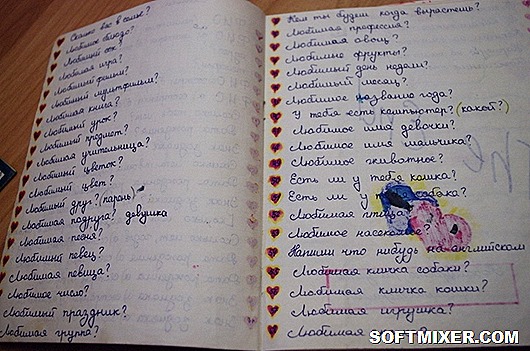 Сколько вас в семье?
Любимое блюдо?
Любимый сок?
Любимая игра?
Любимый фильм?
Любимый мультфильм?
Любимая книга?
Любимый урок?
Любимый предмет?
Любимая учительница?
Любимый цветок?
Любимый цвет?
Любимый друг? (парень)
Любимая подруга? девушка
Любимая песня?
Любимый певец?
Любимая певица?
Любимое число?
Любимый праздник?
Любимая группа?
Кем ты будеш когда вырастешь?
Любимая профессия?
Любимая овощ?
Любимые фрукты?
Любимый день недели?
Любимый месяц?
Любимое название года?
У тебя есть компьютер? (какой?)
Любимое имя девочки?
Любимое имя мальчика?
Любимое животное?
Есть ли у тебя кошка?
Есть ли у собака?
Любимая птица?
Любимое насекомое?
Напиши что нибудь на английском
Любимая кличка собаки?
Любимая кличка кошки?
Любимая игрушка?
Любимая
SOFTMIXER.COM